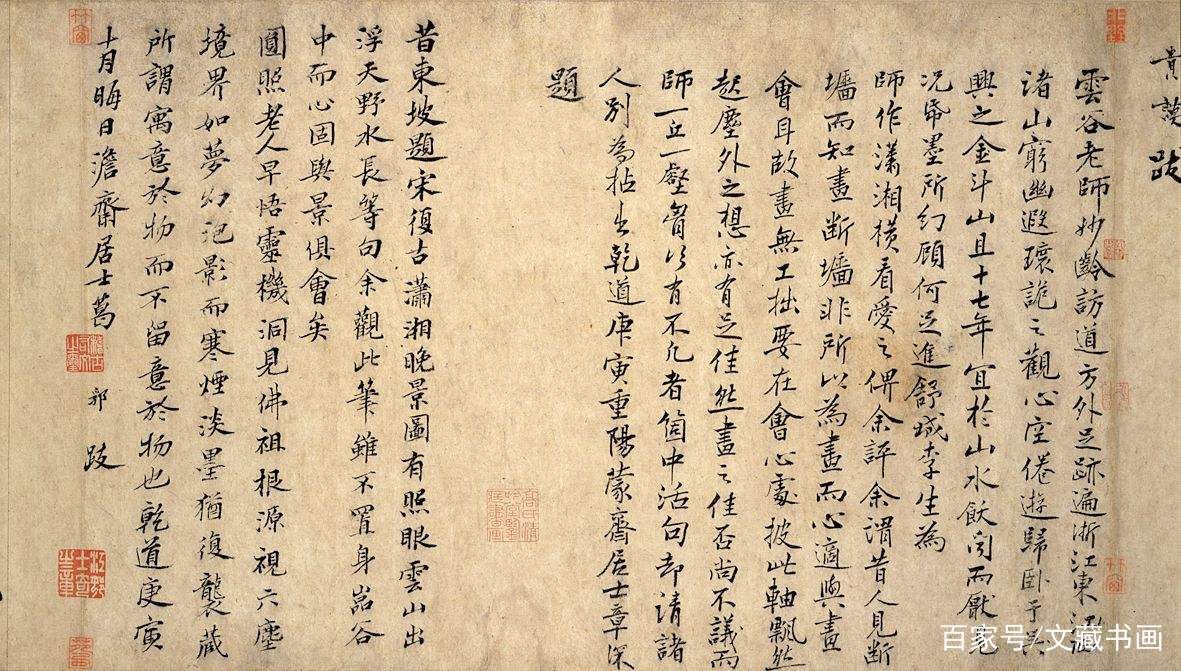 貴謨跋
雲谷老師妙齡訪道方外足跡遍浙江東
諸山窮幽遐瓌詭之觀心空倦遊歸卧于吳
興之金斗山且十七年宜於山水飫聞而厭見
況帋墨所幻顧何足進舒城李生為
師作瀟湘横看愛之俾余評余謂昔人見斷
墻而知畫斷墻非所以為畫而心適與畫
會耳故畫無工拙要在會心處披此軸飄然
起塵外之想亦有足佳然畫之佳否尚不議而
師一丘一壑胷次有不凡者箇中活句却請諸
人別為拈出乾道庚寅重陽蒙齋居士章深
題
昔東坡題宋復古瀟湘晚景圖有照眼雲山出
浮天野水長等句余觀此筆雖不置身嵓谷
中而心固與景俱會矣
圓照老人早悟靈機洞見佛祖根源視六塵
境界如夢幻泡影而寒煙淡墨猶復襲藏
所謂寓意於物而不留意於物也乾道庚寅
十月晦日澹齋居士葛 郯 跋
百家号/文藏书画